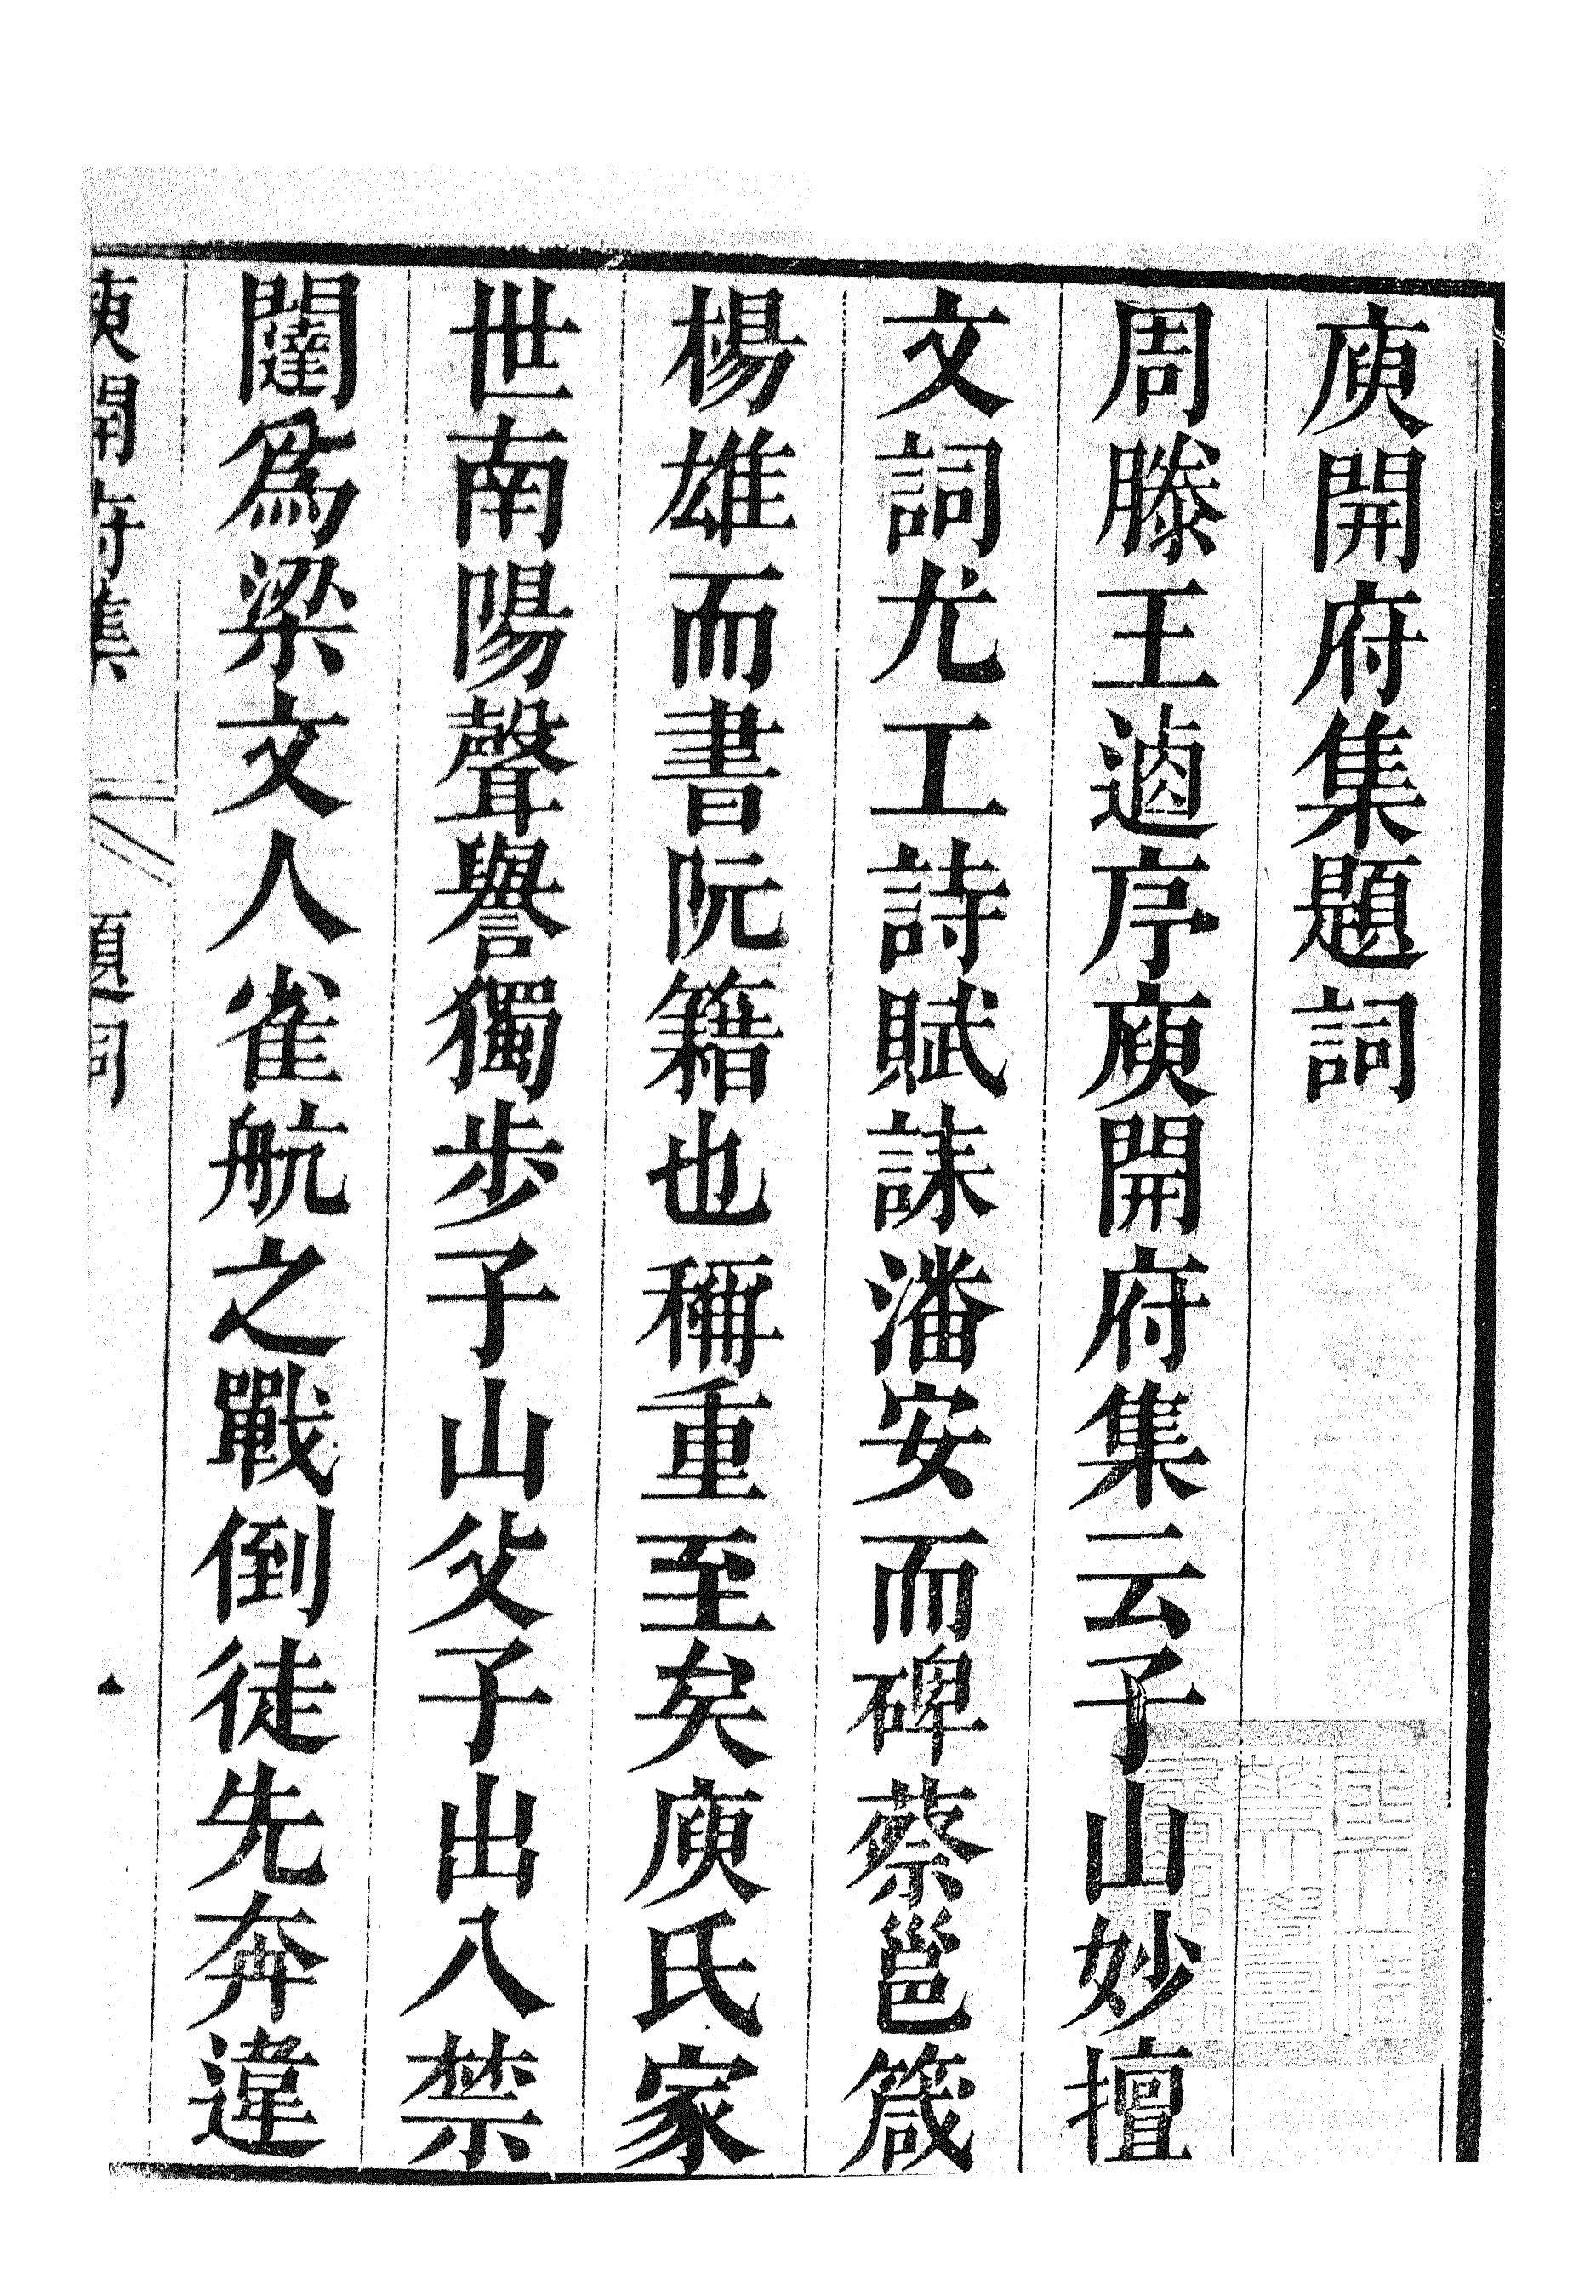 庾開府集題詞
周滕王逌序庾開府集云子山妙擅
文詞尤工詩賦誄潘安而碑蔡邕箴
楊雄而書阮籍也稱重至矣庾氏家
世南陽聲譽獨步子山父子出入禁
闥爲梁文人雀航之戰倒徒先奔違
庾開府集 題詞